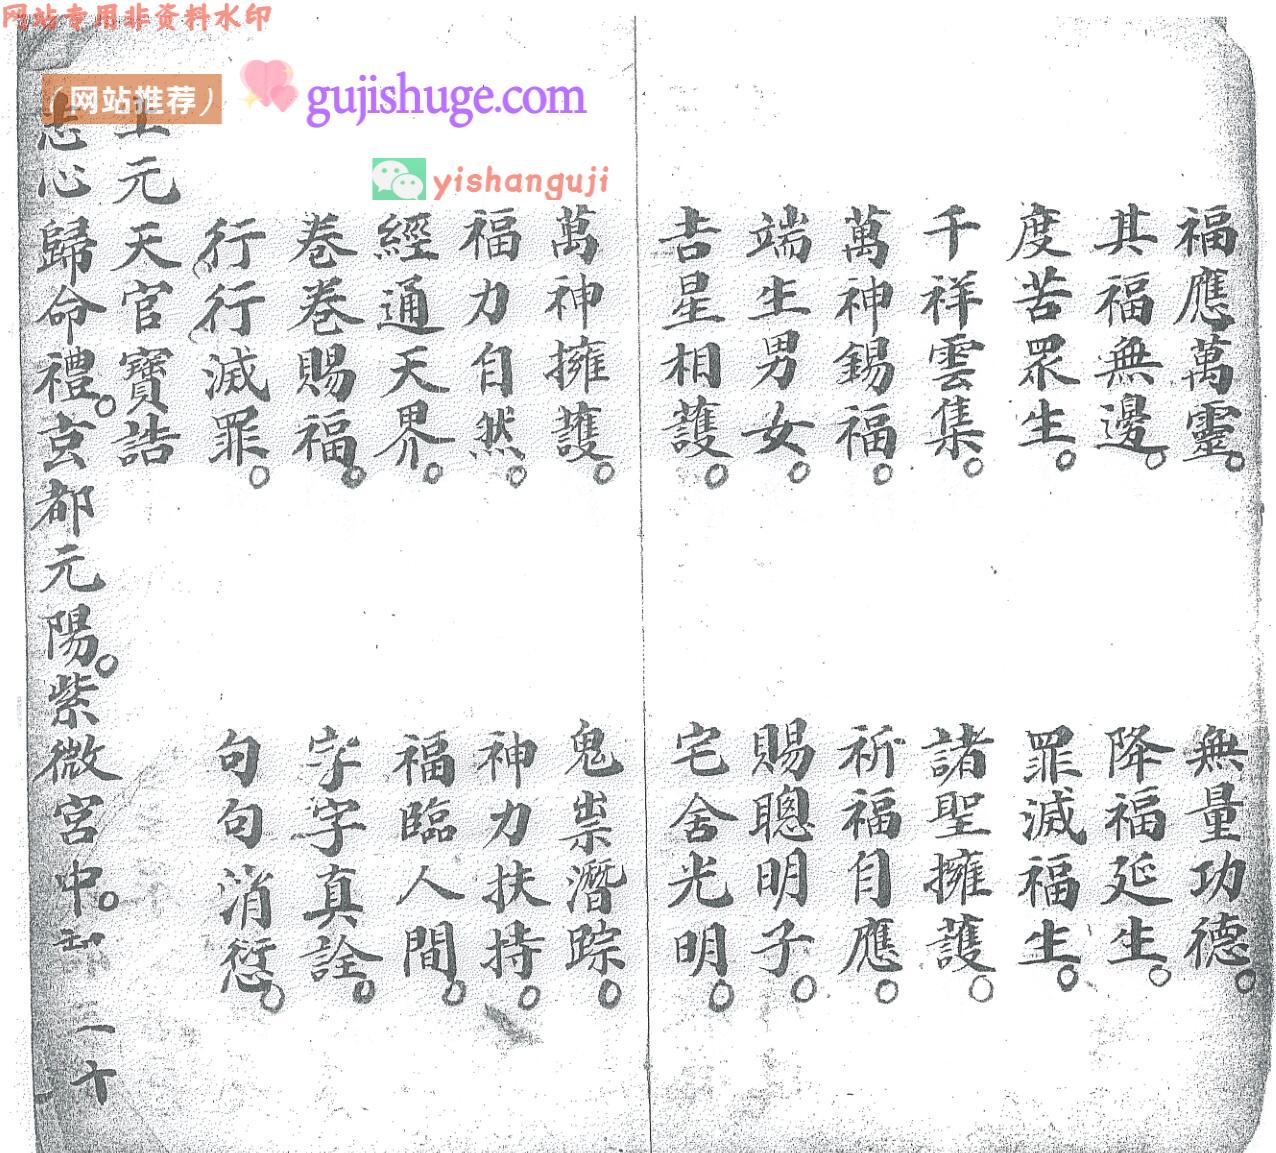 网站专用非资料水印
（网站推荐）
gujishuge.com
yishanguji
福應萬靈。 無量功德。
其福無邊。 降福延生。
度苦眾生。 罪滅福生。
千祥雲集。 諸聖擁護。
萬神錫福。 祈福自應。
端生男女。 賜聰明子。
吉星相護。 宅舍光明。
萬神擁護。 鬼祟潛踪。
福力自然。 神力扶持。
經通天界。 福臨人間。
卷卷賜福。 字字真詮。
行行滅罪。 句句消愆。
上元天官寶誥
志心歸命禮。玄都元陽。紫微宮中。部三十